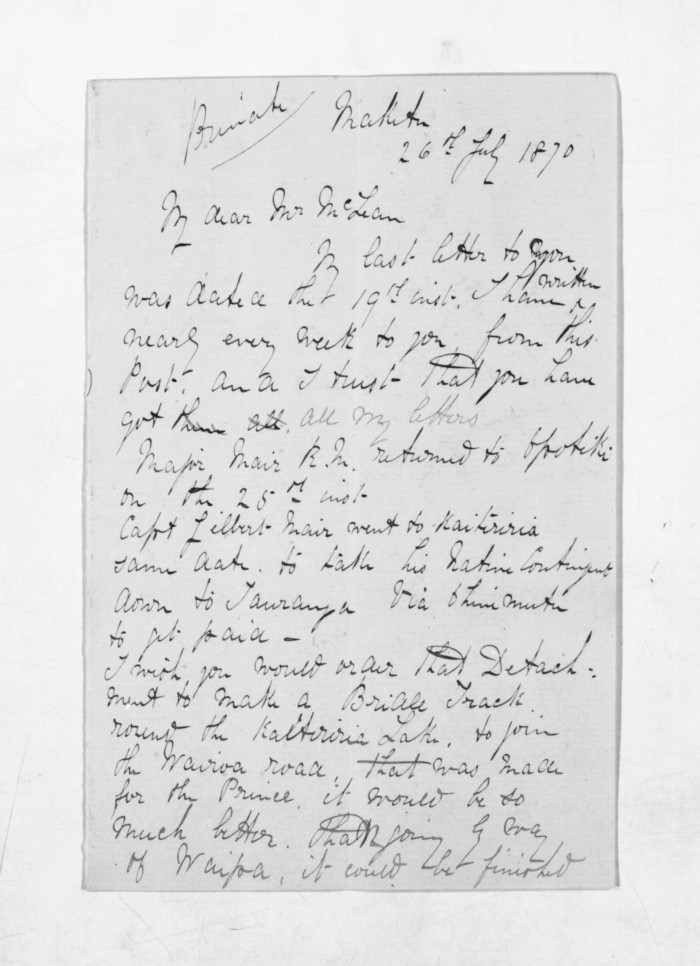 Private
Maketu
26th July 1870
My dear Mr McLean
My last letter to you
was dated the 19th inst. I have written
nearly every week to you, from this
Post. and I trust that you have
got them all. all my letters
Major Mair R.M. returned to Opotiki
on the 25th inst
Capt Gilbert Mair went to Kaitiriria
same date. to take his Native Contingent
down to Tauranga Via Ohinimutu
to get paid —
I wish you would order that Detach-
ment to make a Bridle Track
round the Kaitiriria Lake. to join
the Wairoa road, that was made
for the Prince, it would be so
much better. than going by way
of Waipa, it could be finished